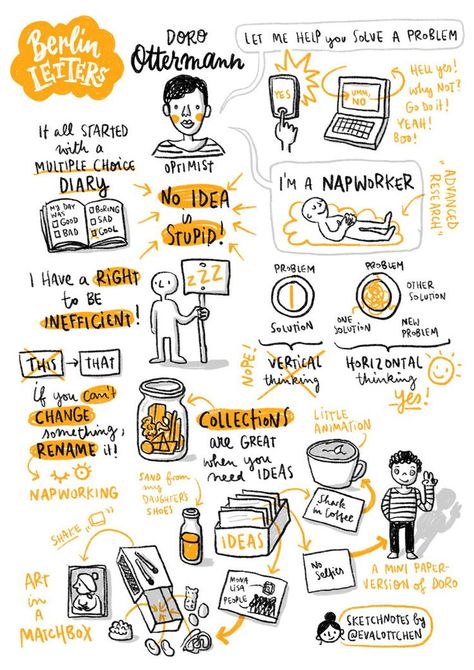 Berlin
LETTERS
DORO
Ottermann
OPTIMIST
LET ME HELP you SOLVE A PROBLEM
YES
UMM,
NO
HELL yes!
Why NOT?
Go do it!
YEAH!
BOO!
It all STARTED
with a
MULTIPLE CHOICE
DIARY
MY DAY
WAS
GOOD
BAD
BORING
SAD
COOL
NO IDEA
is
STUPID!
I'M A NAPWORKER
"ADVANCED
RESEARCH"
I HAVE A RIGHT
to BE
INEFFICIENT!
ZZZ
PROBLEM
SOLUTION
PROBLEM
OTHER
SOLUTION
ONE
SOLUTION
NEW
PROBLEM
NOPE!
VERTICAL
thinking
HORIZONTAL
thinking
Yes!
THIS
THAT
if you CAN'T
CHANGE
something,
RENAME it!
NAPWORKING
COLLECTIONS
are GREAT
when you
need IDEAS
LITTLE
ANIMATION
Shark
in Coffee
SAND from
my
DAUGHTERS
SHOES
IDEAS
MONA
LISA
PEOPLE
No
Selfies
A MINI PAPER-
VERSION of DORO
SHAKE
ART
in a
MATCHBOX
SKETCHNOTES by
@EVALOTTCHEN